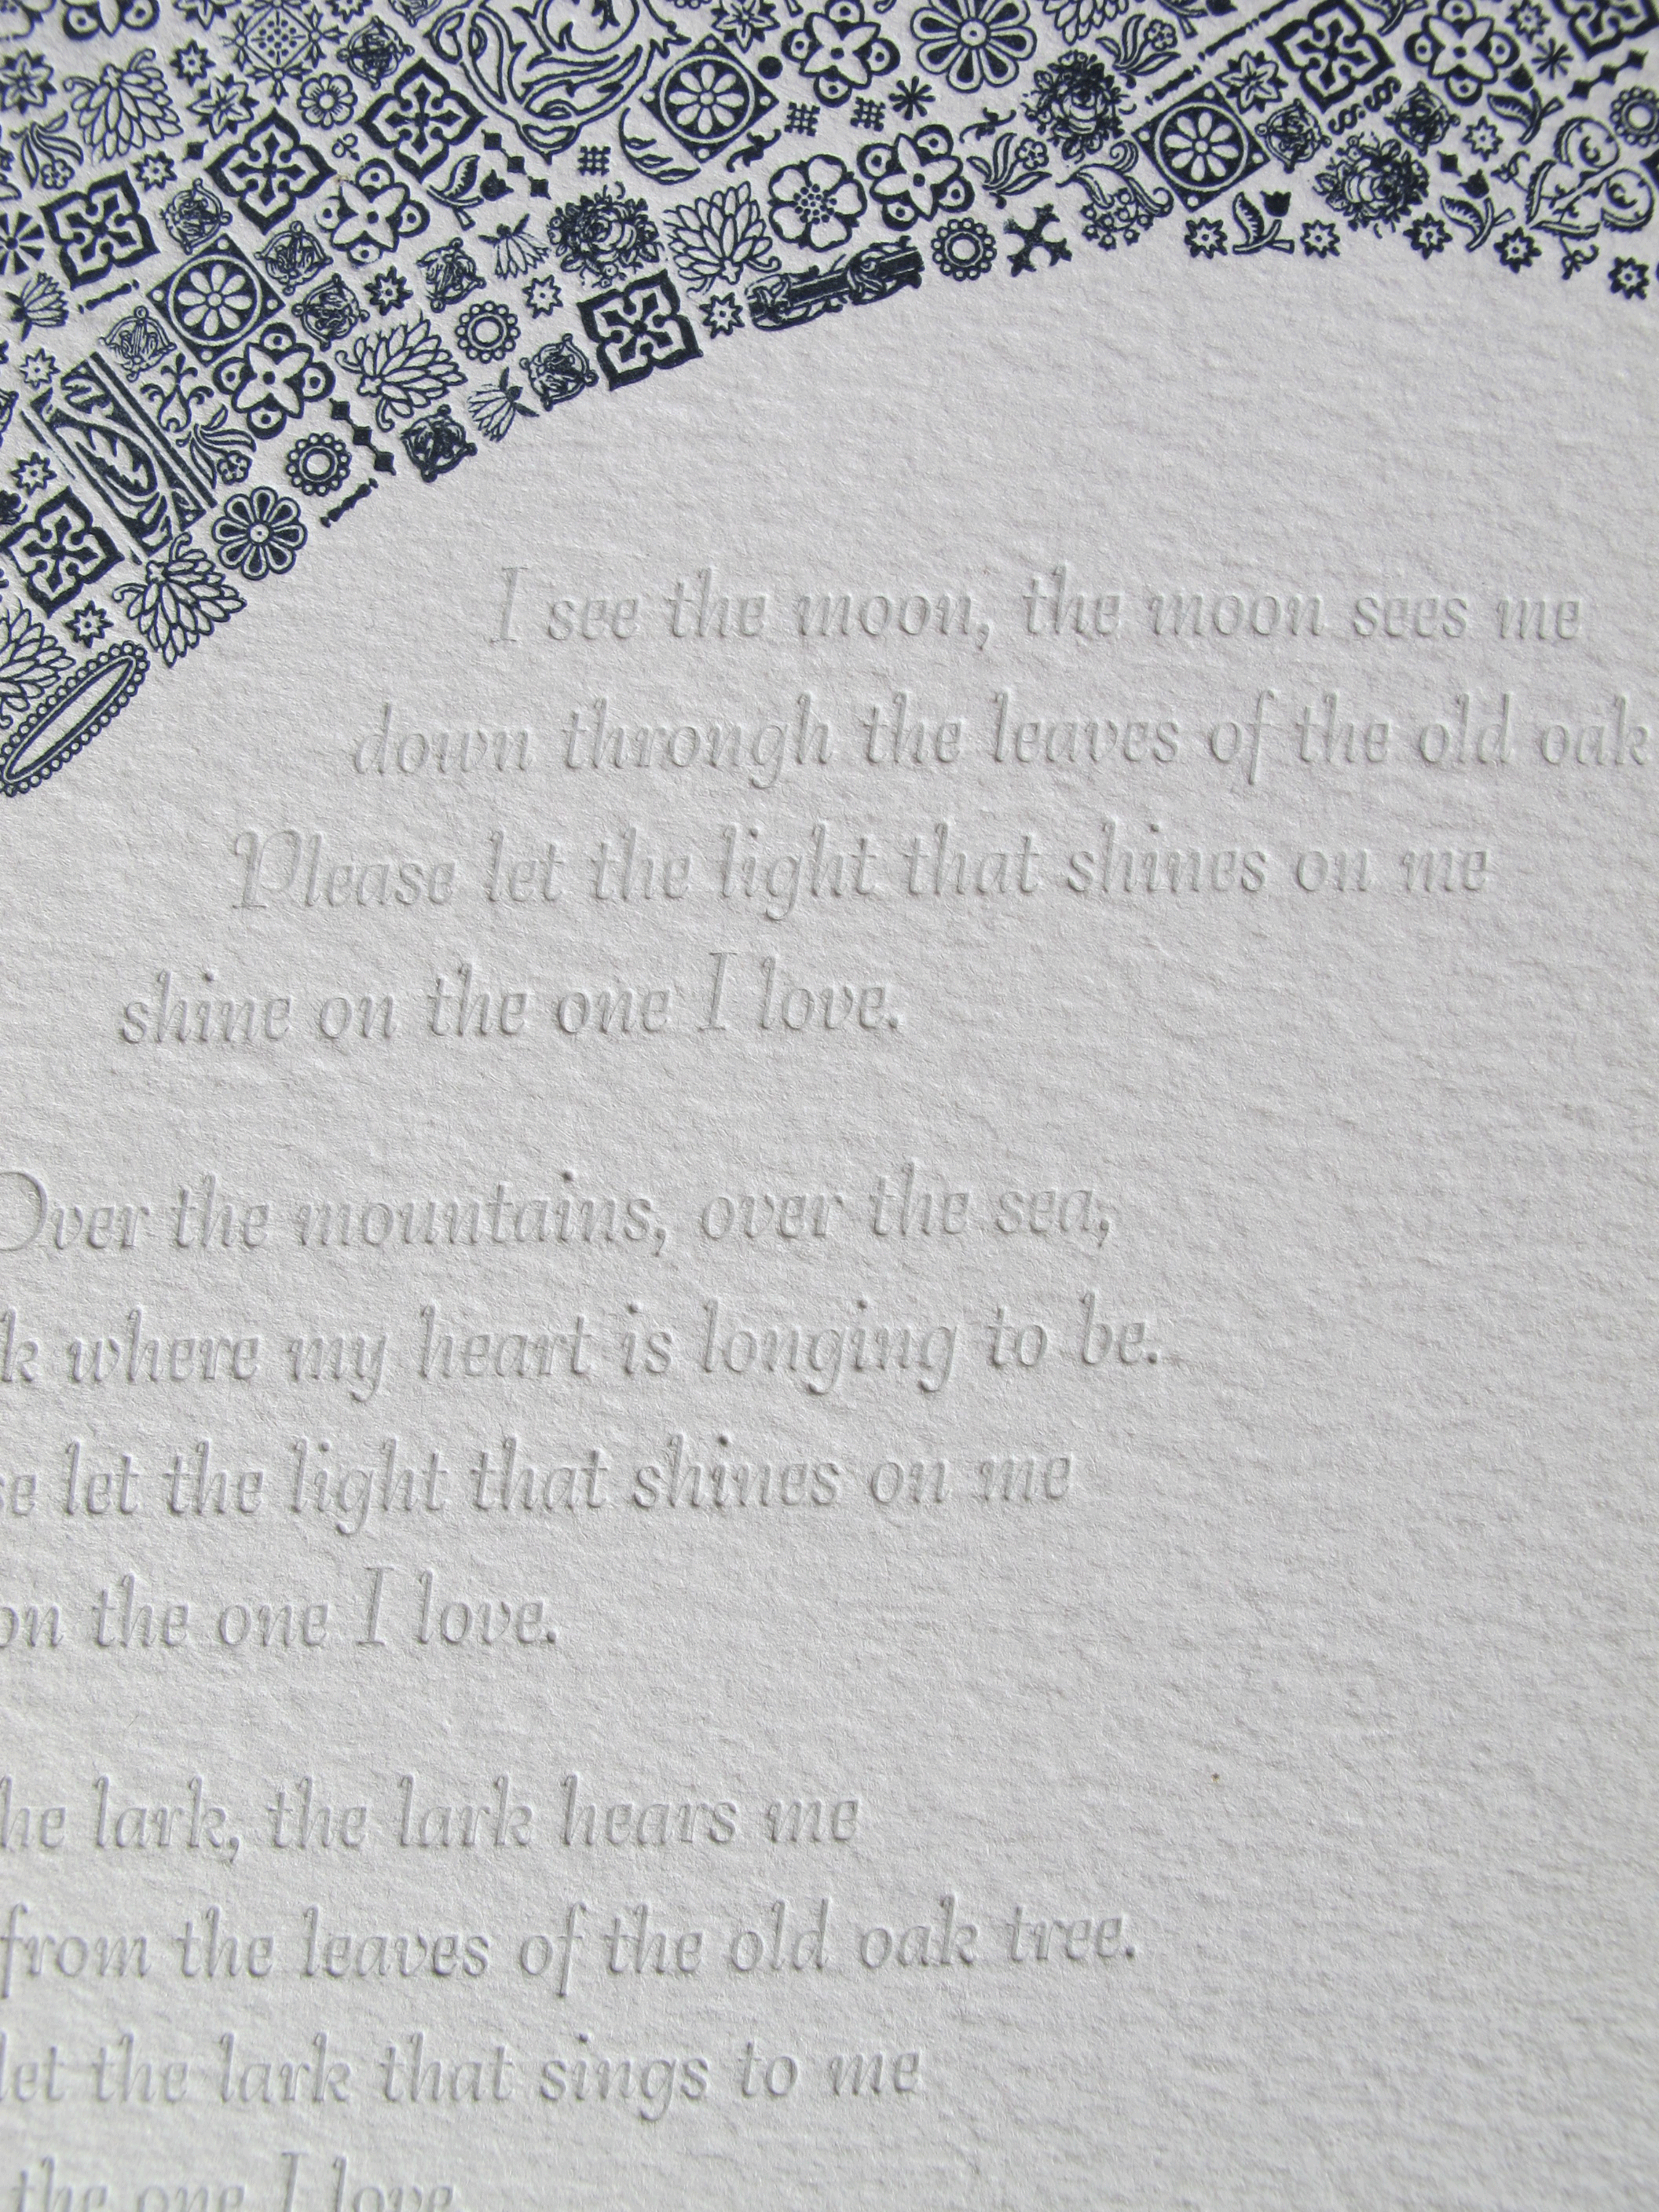 I see the moon, the moon sees me
down through the leaves of the old oak
Please let the light that shines on me
shine on the one I love.
Over the mountains, over the sea,
k where my heart is longing to be.
se let the light that shines on me
on the one I love.
he lark, the lark hears me
from the leaves of the old oak tree.
let the lark that sings to me
the one I love.